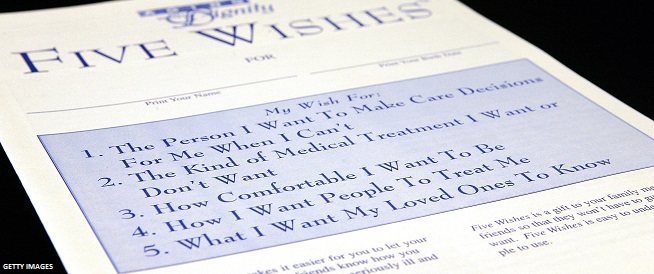 Dignity
FIVE WISHES
FOR
Print Your Name
Print Your Birth Date
My Wish For:
1. The Person I Want To Make Care Decisions
For Me When I Can't
2. The Kind of Medical Treatment I Want or
Don't Want
3. How Comfortable I Want To Be
4. How I Want People To Treat Me
5. What I Want My Loved Ones To Know
makes it easier for you to let your
friends know how you
seriously ill and
Five Wishes is a gift to your family me
friends so that they won't have to gu
want. Five Wishes is easy to unde
ple to use.
GETTY IMAGES